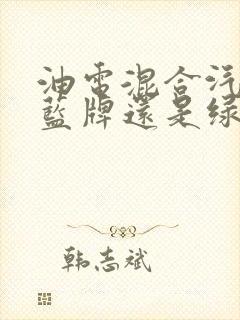 油電混合汽
藍牌還是綠
韩志斌